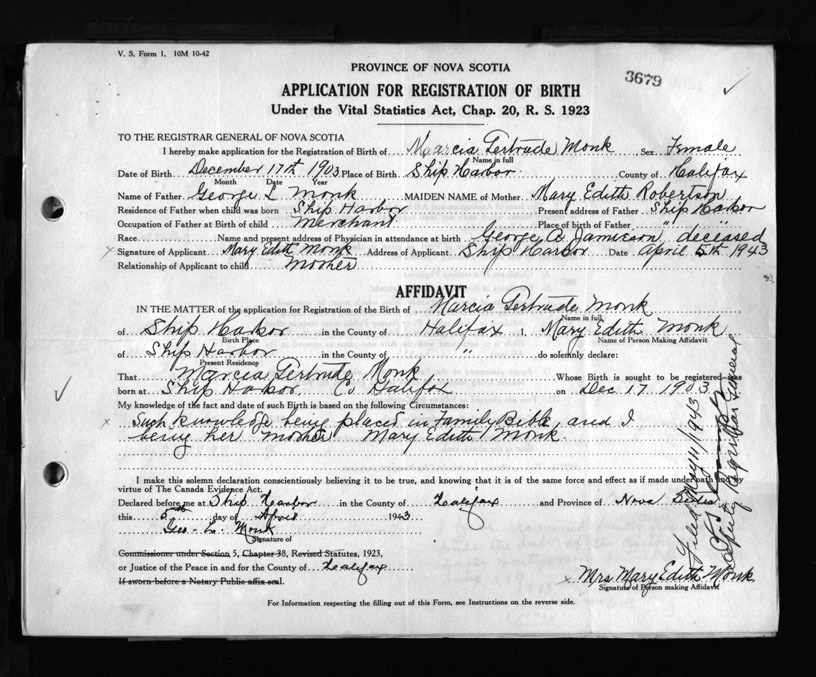 V. S. Form 1. 10M 10-42
PROVINCE OF NOVA SCOTIA
3679
APPLICATION FOR REGISTRATION OF BIRTH
Under the Vital Statistics Act, Chap. 20, R. S. 1923
TO THE REGISTRAR GENERAL OF NOVA SCOTIA
I hereby make application for the Registration of Birth of Marcia Gertrude Monk Sex Female
Name in full
Date of Birth December 17th 1903 Place of Birth Ship Harbor County of Halifax
Month Date Year
Name of Father George L Monk MAIDEN NAME of Mother Mary Edith Robertson
Residence of Father when child was born Ship Harbor Present address of Father Ship Harbor
Occupation of Father at Birth of child Merchant Place of birth of Father " "
Race Name and present address of Physician in attendance at birth George A Jamieson deceased
x Signature of Applicant Mary Edith Monk Address of Applicant Ship Harbor Date April 5th 1943
Relationship of Applicant to child Mother
AFFIDAVIT
IN THE MATTER of the application for Registration of the Birth of Marcia Gertrude Monk
Name in full
of Ship Harbor in the County of Halifax I, Mary Edith Monk
Birth Place Name of Person Making Affidavit
of Ship Harbor in the County of " do solemnly declare:
Present Residence
That Marcia Gertrude Monk Whose Birth is sought to be registered was
born at Ship Harbor, Co Halifax on Dec 17 1903
My knowledge of the fact and date of such Birth is based on the following Circumstances:
x Such knowledge being placed in Family Bible, and I
being her mother Mary Edith Monk.
I make this solemn declaration conscientiously believing it to be true, and knowing that it is of the same force and effect as if made under oath and by
virtue of The Canada Evidence Act.
Declared before me at Ship Harbor in the County of Halifax and Province of Nova Scotia
this 5th day of April 1943
Geo. L. Monk
Signature of
Commissioner under Section 5, Chapter 38, Revised Statutes, 1923,
or Justice of the Peace in and for the County of Halifax
If sworn before a Notary Public affix seal.
x Mrs Mary Edith Monk.
Signature of Person making Affidavit
For Information respecting the filling out of this Form, see Instructions on the reverse side.
Filed May 11/1943
Deputy Registrar General